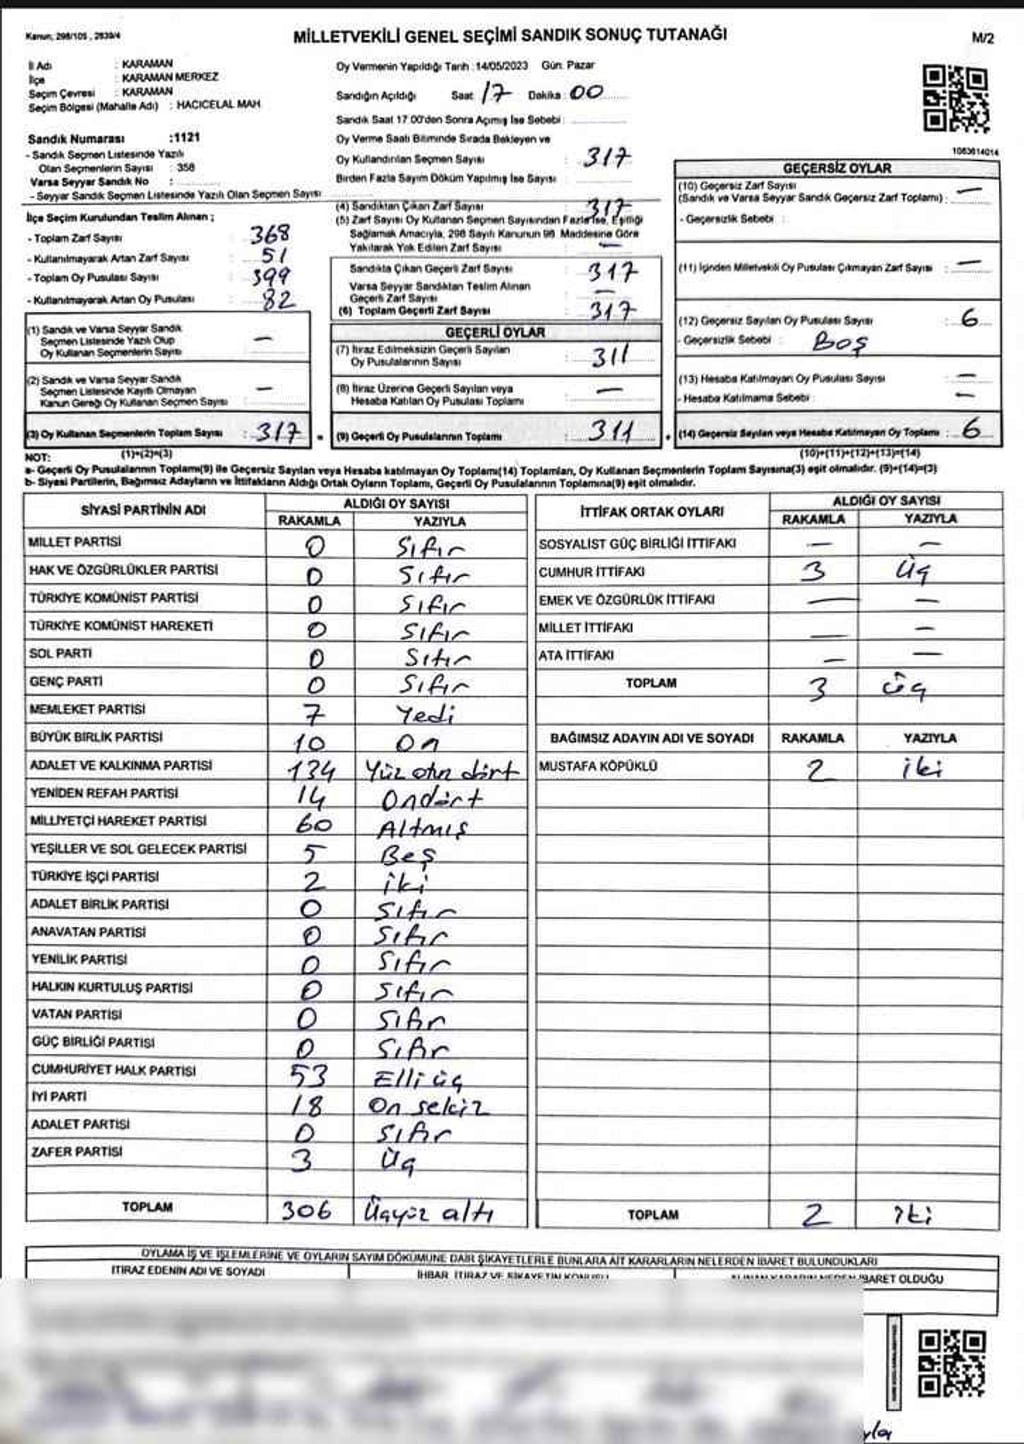 Kanun, 298/105 , 2839/4
MİLLETVEKİLİ GENEL SEÇİMİ SANDIK SONUÇ TUTANAĞI
M/2
İl Adı : KARAMAN
İlçe : KARAMAN MERKEZ
Seçim Çevresi : KARAMAN
Seçim Bölgesi (Mahalle Adı) : HACICELAL MAH
Sandık Numarası :1121
- Sandık Seçmen Listesinde Yazılı
Olan Seçmenlerin Sayısı : 358
Varsa Seyyar Sandık No :
- Seyyar Sandık Seçmen Listesinde Yazılı Olan Seçmen Sayısı :
Oy Vermenin Yapıldığı Tarih : 14/05/2023 Gün: Pazar
Sandığın Açıldığı Saat: 17 Dakika: 00
Sandık Saat 17:00'den Sonra Açılmış İse Sebebi :
Oy Verme Saati Bitiminde Sırada Bekleyen ve
Oy Kullandırılan Seçmen Sayısı : 317
Birden Fazla Sayım Döküm Yapılmış İse Sayısı :
1083614014
İlçe Seçim Kurulundan Teslim Alınan ;
- Toplam Zarf Sayısı : 368
- Kullanılmayarak Artan Zarf Sayısı : 51
- Toplam Oy Pusulası Sayısı : 399
- Kullanılmayarak Artan Oy Pusulası : 82
(1) Sandık ve Varsa Seyyar Sandık
Seçmen Listesinde Yazılı Olup
Oy Kullanan Seçmenlerin Sayısı : —
(2) Sandık ve Varsa Seyyar Sandık
Seçmen Listesinde Kayıtlı Olmayan
Kanun Gereği Oy Kullanan Seçmen Sayısı : —
(3) Oy Kullanan Seçmenlerin Toplam Sayısı : 317
(1)+(2)=(3)
(4) Sandıktan Çıkan Zarf Sayısı : 317
(5) Zarf Sayısı Oy Kullanan Seçmen Sayısından Fazla İse, Eşitliği
Sağlamak Amacıyla, 298 Sayılı Kanunun 98. Maddesine Göre
Yakılarak Yok Edilen Zarf Sayısı : —
Sandıkta Çıkan Geçerli Zarf Sayısı : 317
Varsa Seyyar Sandıktan Teslim Alınan
Geçerli Zarf Sayısı : —
(6) Toplam Geçerli Zarf Sayısı : 317
GEÇERLİ OYLAR
(7) İtiraz Edilmeksizin Geçerli Sayılan
Oy Pusulalarının Sayısı : 311
(8) İtiraz Üzerine Geçerli Sayılan veya
Hesaba Katılan Oy Pusulası Toplamı : —
(9) Geçerli Oy Pusulalarının Toplamı : 311
GEÇERSİZ OYLAR
(10) Geçersiz Zarf Sayısı
(Sandık ve Varsa Seyyar Sandık Geçersiz Zarf Toplamı) : —
- Geçersizlik Sebebi :
(11) İçinden Milletvekili Oy Pusulası Çıkmayan Zarf Sayısı : —
(12) Geçersiz Sayılan Oy Pusulası Sayısı : 6
- Geçersizlik Sebebi : Boş
(13) Hesaba Katılmayan Oy Pusulası Sayısı : —
- Hesaba Katılmama Sebebi : —
(14) Geçersiz Sayılan veya Hesaba Katılmayan Oy Toplamı : 6
(10)+(11)+(12)+(13)=(14)
NOT:
a- Geçerli Oy Pusulalarının Toplamı(9) ile Geçersiz Sayılan veya Hesaba katılmayan Oy Toplamı(14) Toplamları, Oy Kullanan Seçmenlerin Toplam Sayısına(3) eşit olmalıdır. (9)+(14)=(3)
b- Siyasi Partilerin, Bağımsız Adayların ve İttifakların Aldığı Ortak Oyların Toplamı, Geçerli Oy Pusulalarının Toplamına(9) eşit olmalıdır.
SİYASİ PARTİNİN ADI ALDIĞI OY SAYISI
RAKAMLA YAZIYLA
MİLLET PARTİSİ 0 Sıfır
HAK VE ÖZGÜRLÜKLER PARTİSİ 0 Sıfır
TÜRKİYE KOMÜNİST PARTİSİ 0 Sıfır
TÜRKİYE KOMÜNİST HAREKETİ 0 Sıfır
SOL PARTİ 0 Sıfır
GENÇ PARTİ 0 Sıfır
MEMLEKET PARTİSİ 7 Yedi
BÜYÜK BİRLİK PARTİSİ 10 On
ADALET VE KALKINMA PARTİSİ 134 Yüz otuz dört
YENİDEN REFAH PARTİSİ 14 Ondört
MİLLİYETÇİ HAREKET PARTİSİ 60 Altmış
YEŞİLLER VE SOL GELECEK PARTİSİ 5 Beş
TÜRKİYE İŞÇİ PARTİSİ 2 iki
ADALET BİRLİK PARTİSİ 0 Sıfır
ANAVATAN PARTİSİ 0 Sıfır
YENİLİK PARTİSİ 0 Sıfır
HALKIN KURTULUŞ PARTİSİ 0 Sıfır
VATAN PARTİSİ 0 Sıfır
GÜÇ BİRLİĞİ PARTİSİ 0 Sıfır
CUMHURİYET HALK PARTİSİ 53 Elli üç
İYİ PARTİ 18 On sekiz
ADALET PARTİSİ 0 Sıfır
ZAFER PARTİSİ 3 Üç
TOPLAM 306 Üçyüz altı
İTTİFAK ORTAK OYLARI ALDIĞI OY SAYISI
RAKAMLA YAZIYLA
SOSYALİST GÜÇ BİRLİĞİ İTTİFAKI — —
CUMHUR İTTİFAKI 3 Üç
EMEK VE ÖZGÜRLÜK İTTİFAKI — —
MİLLET İTTİFAKI — —
ATA İTTİFAKI — —
TOPLAM 3 Üç
BAĞIMSIZ ADAYIN ADI VE SOYADI RAKAMLA YAZIYLA
MUSTAFA KÖPÜKLÜ 2 iki
TOPLAM 2 iki
OYLAMA İŞ VE İŞLEMLERİNE VE OYLARIN SAYIM DÖKÜMÜNE DAİR ŞİKAYETLERLE BUNLARA AİT KARARLARIN NELERDEN İBARET BULUNDUKLARI
İTİRAZ EDENİN ADI VE SOYADI
İHBAR, İTİRAZ VE ŞİKAYETİN KONUSU
ALINAN KARARIN NEDEN İBARET OLDUĞU